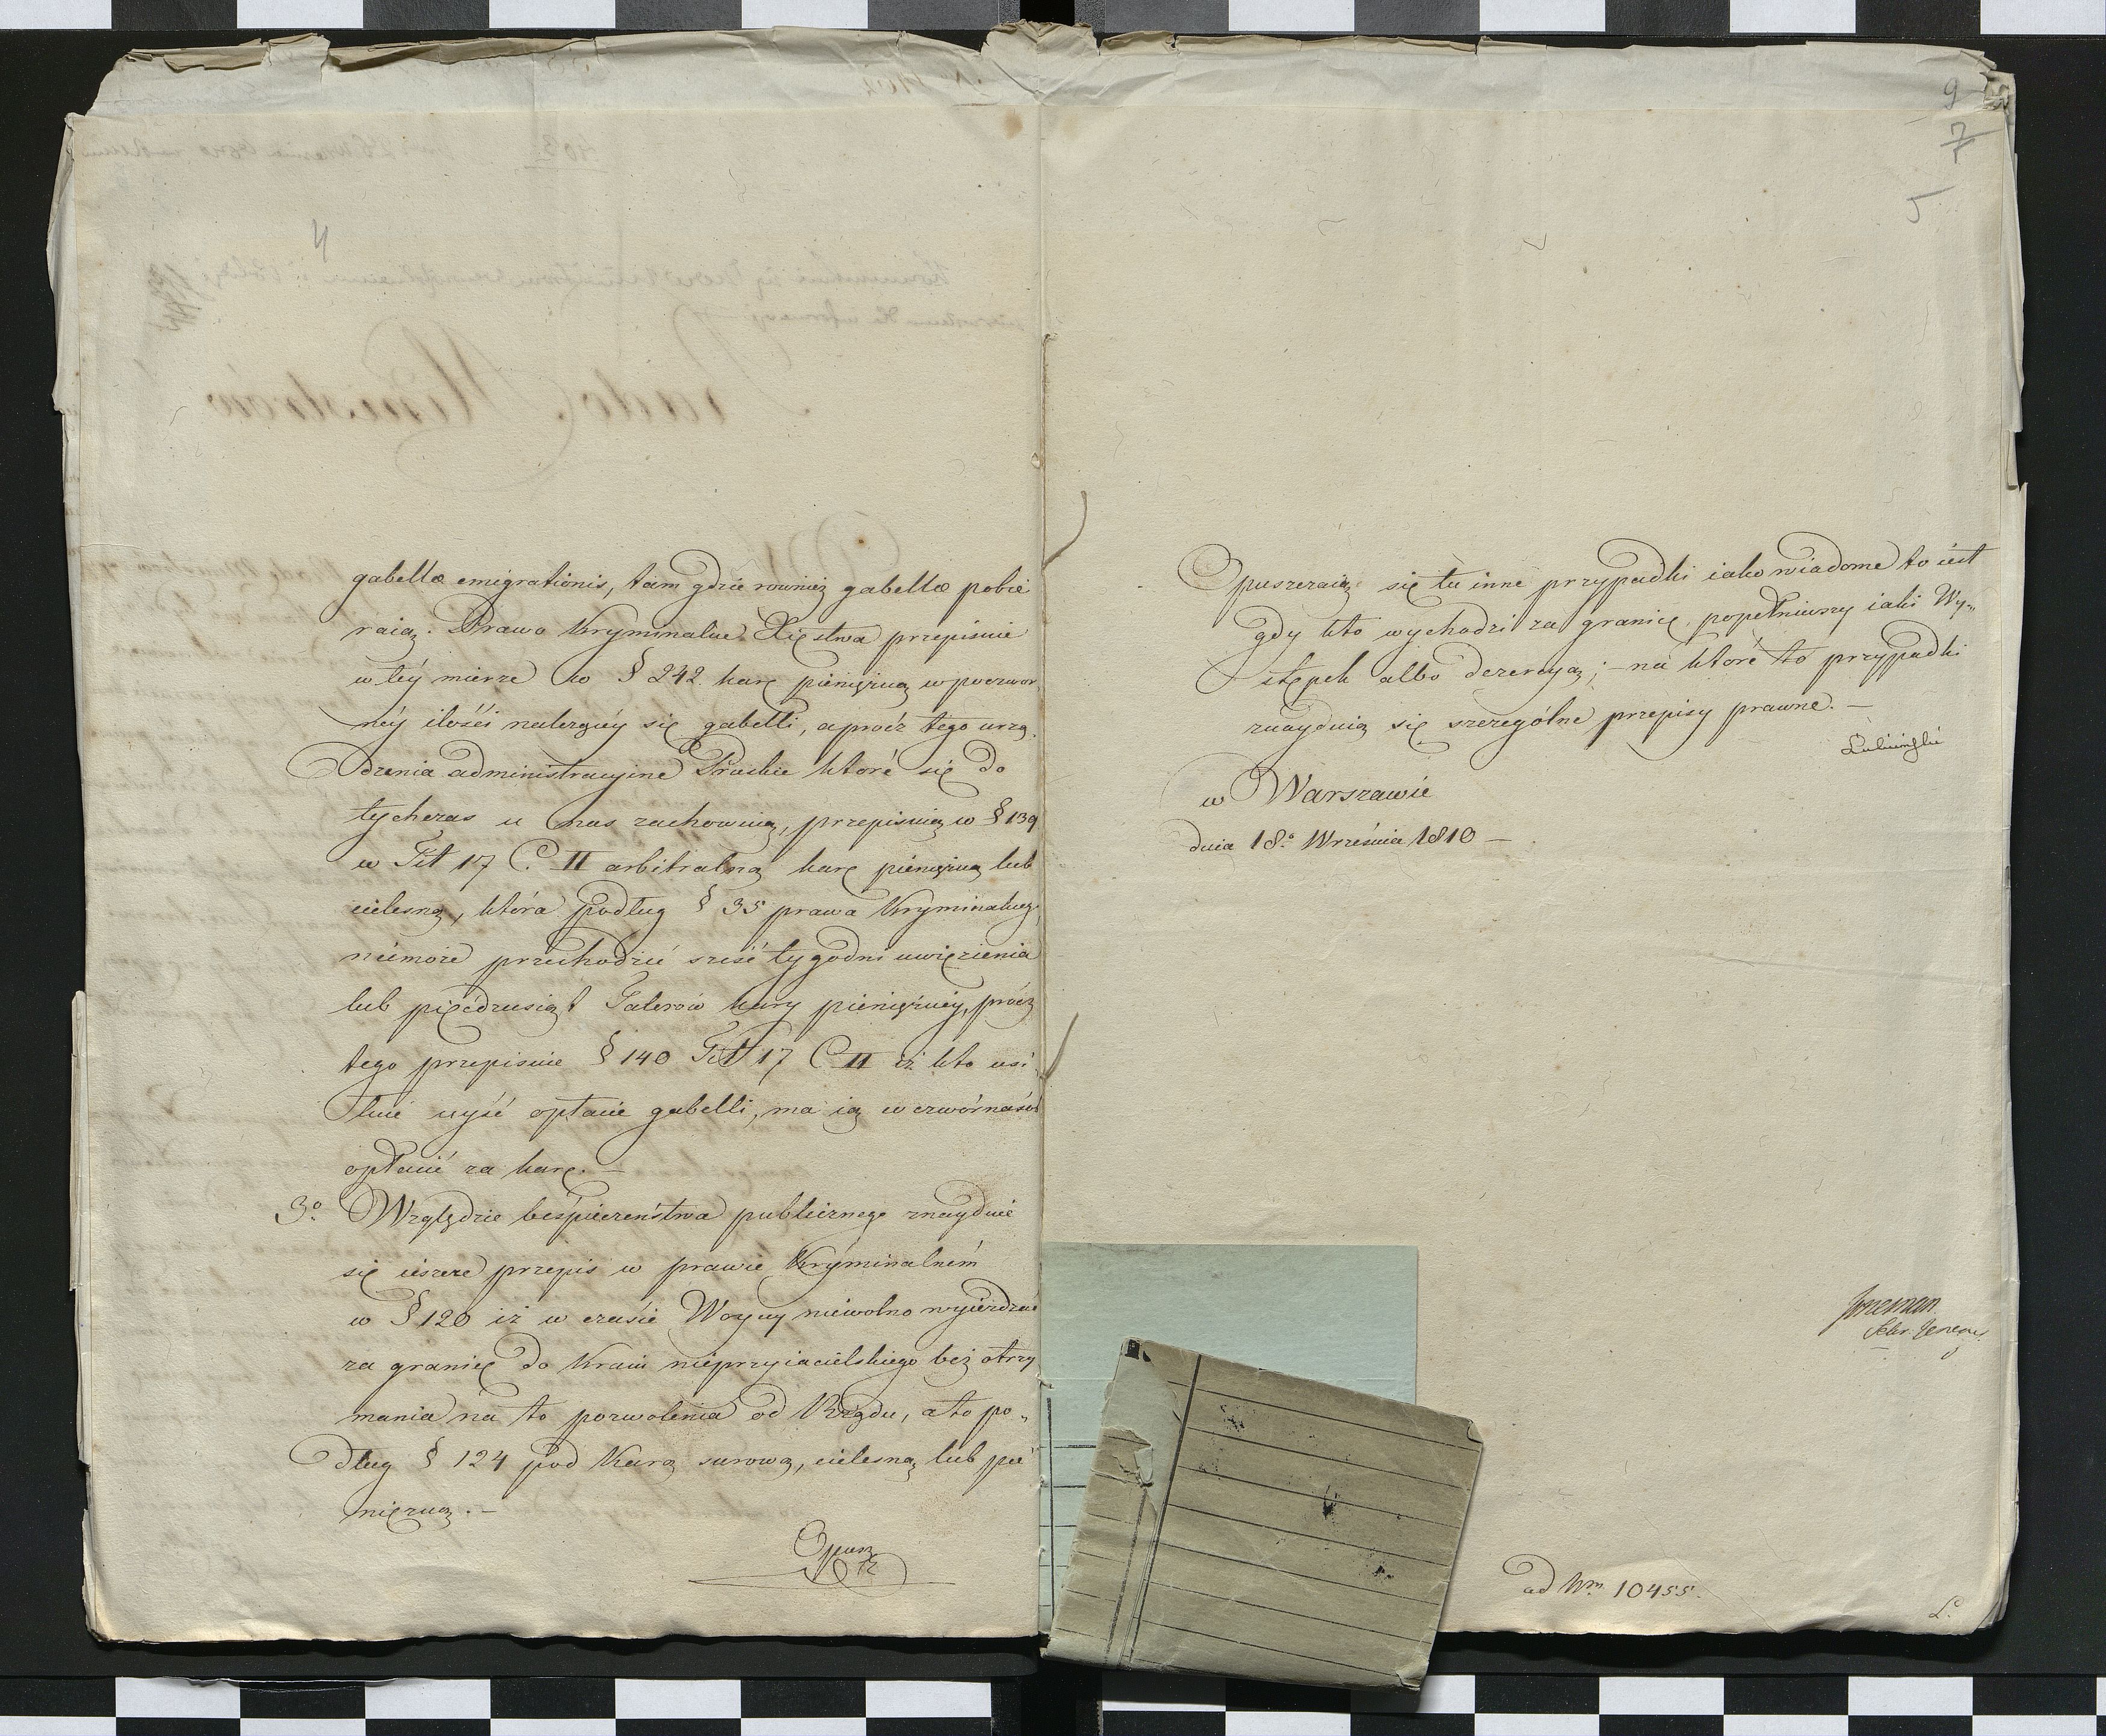 4
gabellæ emigrationis, tam gdzie rowniez gabellæ pobie
raią. Prawo Kryminalne Xięstwa przepisuie
w téy mierze w § 242. karę pieniężną w poczwor
néy ilośći należnéy się gabelli, a prócz tego urzą
dzenia administracyine Pruskie ktoré się do
tychczas u nas zachowuią, przepisuią w § 139
w Tit 17 C. II arbitralną karę pieniężną lub
cielesną, która podług § 35 prawa Kryminalneg
niémoże przechodzić sześć tygodni uwięzienia
lub pięćdziesiąt Talerów kary pieniężnéy, prócz
tego przepisuie § 140 Tit 17 C II iż kto usi
łuie uyść opłacie gabelli, ma ią w czwórnasób
opłacić za karę. —
3o. Względzie bespieczeństwa publicznego znayduie
się ieszcze przepis w prawie Kryminalném
w § 120 iż w czasie Woyny niewolno wyieżdzać
za granicę do Kraiu nieprzyiacielskiego bez otrzy
mania na to pozwolenia od Rządu, a to po„
dług § 124 pod Karą surową, cielesną lub pie
niężną. —
Opusz
9
7
5
Opuszczaią się tu inne przypadki iako wiadome to iest
gdy kto wychodzi za granicę popełniwszy iaki Wy„
stępek albo dezercyą; — na ktoré to przypadki
znayduią się szczególne przepisy prawne. —
Łubieński
w Warszawie
dnia 18o. Września 1810 —
Sekr. Jener.
ad Nrm 10455.
Ł.